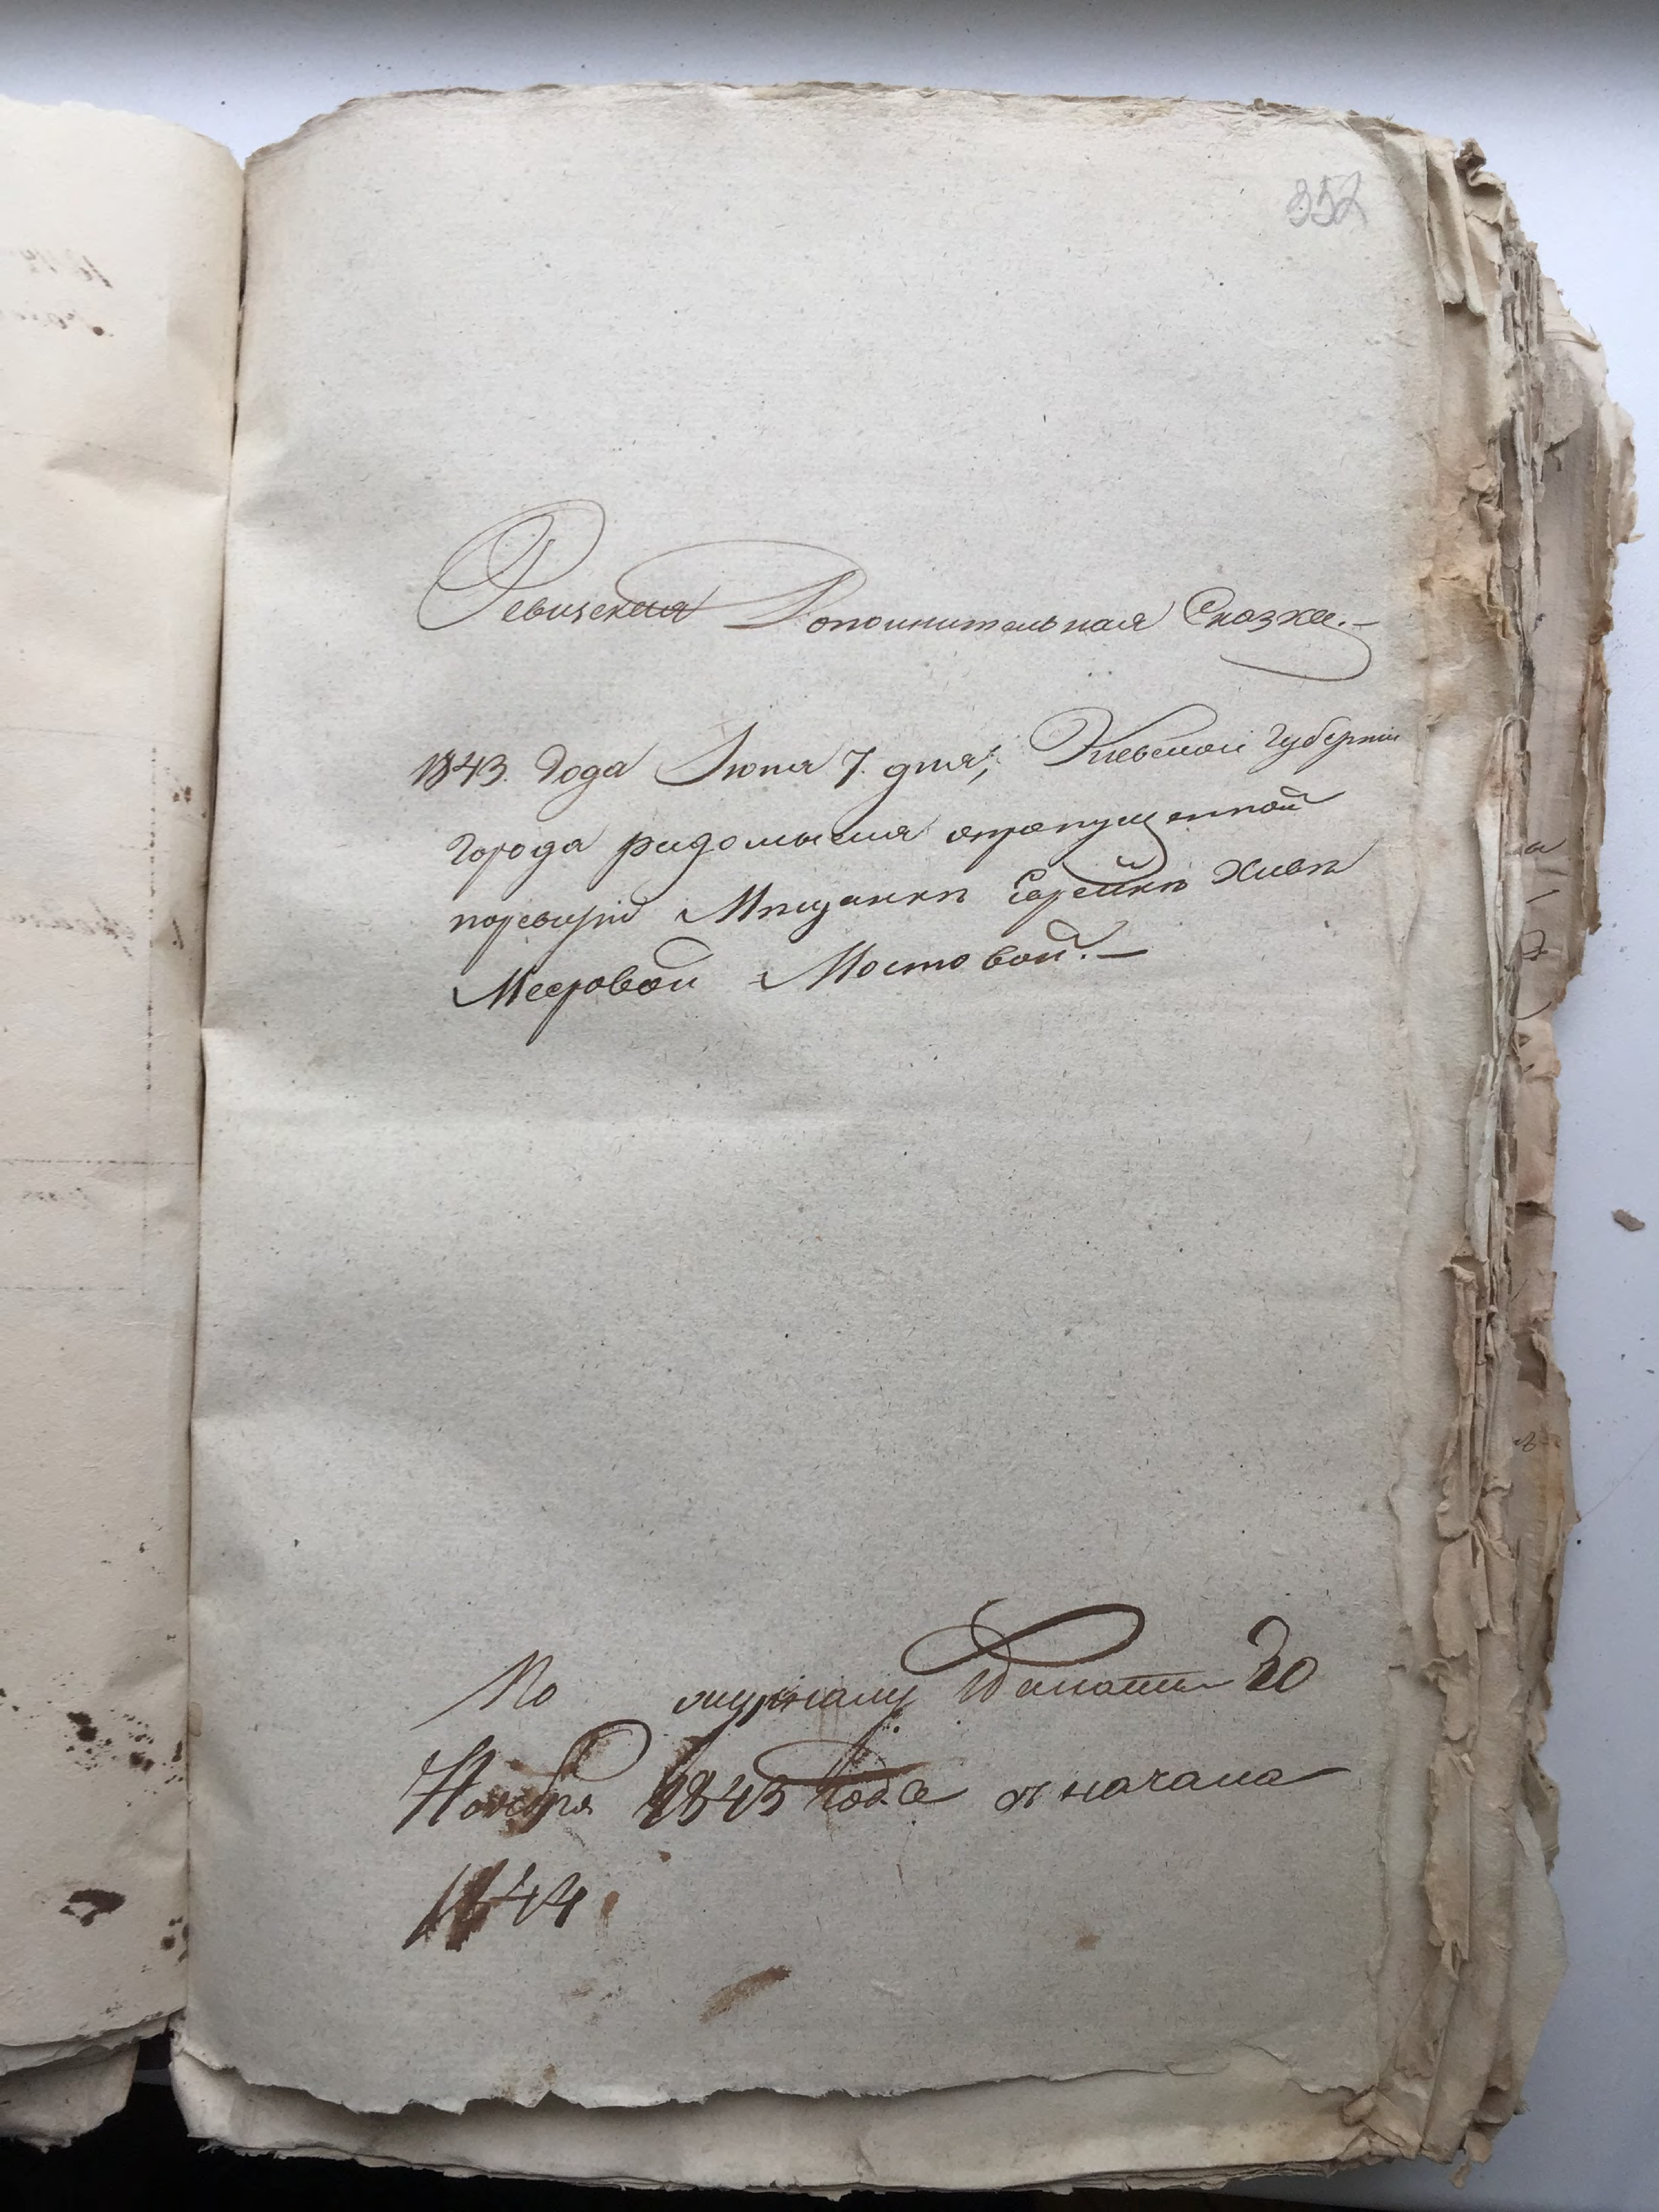 352
Ревизская Дополнительная Сказка.-
1843. Года Июня 7. дня, Киевской Губернии
города радомысля опропущенной
поревизіи Мѣщанкѣ Сарейкѣ Хивѣ
Меэровой Мостовой.-
По журналу Палаты 30
Ноября 1843 года съ начала
1844